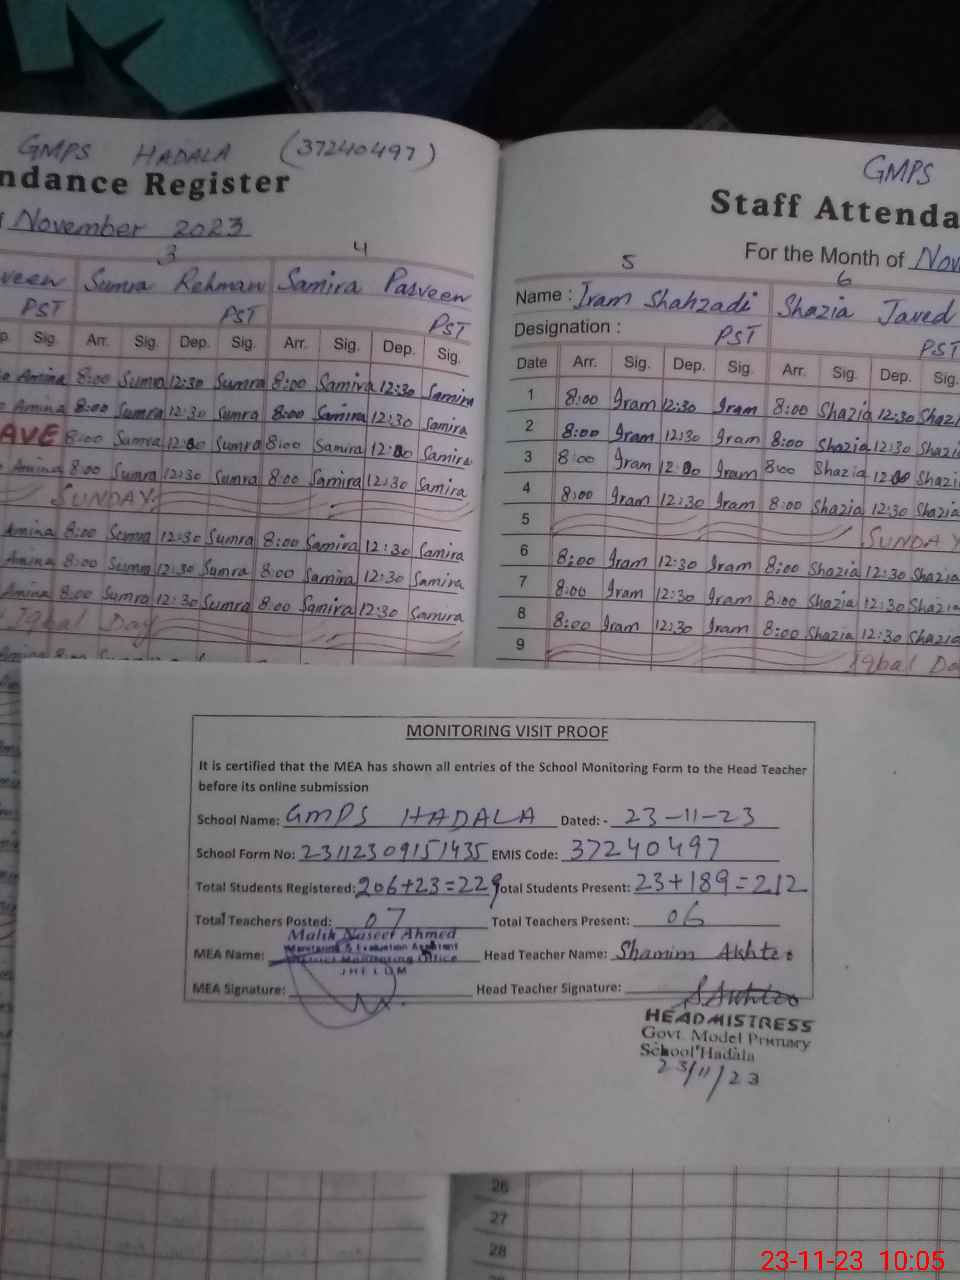 GMPS HADALA (37240497)
ndance Register
November 2023
3 4
veen Sumra Rehman Samira Parveen
PST PST PST
p. Sig. Arr. Sig. Dep. Sig. Arr. Sig. Dep. Sig.
Amina 8:00 Sumra 12:30 Sumra 8:00 Samira 12:30 Samira
Amina 8:00 Sumra 12:30 Sumra 8:00 Samira 12:30 Samira
AVE 8:00 Sumra 12:00 Sumra 8:00 Samira 12:00 Samira
Amina 8:00 Sumra 12:30 Sumra 8:00 Samira 12:30 Samira
SUNDAY
Amina 8:00 Sumra 12:30 Sumra 8:00 Samira 12:30 Samira
Amina 8:00 Sumra 12:30 Sumra 8:00 Samira 12:30 Samira
Amina 8:00 Sumra 12:30 Sumra 8:00 Samira 12:30 Samira
Iqbal Day
GMPS
Staff Attenda
For the Month of Nov
5 6
Name : Iram Shahzadi Shazia Javed
Designation : PST PST
Date Arr. Sig. Dep. Sig. Arr. Sig. Dep. Sig.
1 8:00 Iram 12:30 Iram 8:00 Shazia 12:30 Shazi
2 8:00 Iram 12:30 Iram 8:00 Shazia 12:30 Shazi
3 8:00 Iram 12:00 Iram 8:00 Shazia 12:00 Shazi
4 8:00 Iram 12:30 Iram 8:00 Shazia 12:30 Shazia
5 SUNDAY
6 8:00 Iram 12:30 Iram 8:00 Shazia 12:30 Shazia
7 8:00 Iram 12:30 Iram 8:00 Shazia 12:30 Shazia
8 8:00 Iram 12:30 Iram 8:00 Shazia 12:30 Shazia
9 Iqbal Da
MONITORING VISIT PROOF
It is certified that the MEA has shown all entries of the School Monitoring Form to the Head Teacher
before its online submission
School Name: GMPS HADALA Dated: - 23-11-23
School Form No: 23112309151435 EMIS Code: 37240497
Total Students Registered: 206+23=229 otal Students Present: 23+189=212
Total Teachers Posted: 07 Total Teachers Present: 06
Malik Naseer Ahmed
Monitoring & Evaluation Assistant
MEA Name: District Monitoring Office Head Teacher Name: Shamim Akhter
JHELUM
MEA Signature: Head Teacher Signature: S.Akhter
HEADMISTRESS
Govt. Model Primary
School Hadala
23/11/23
26
27
28
23-11-23 10:05